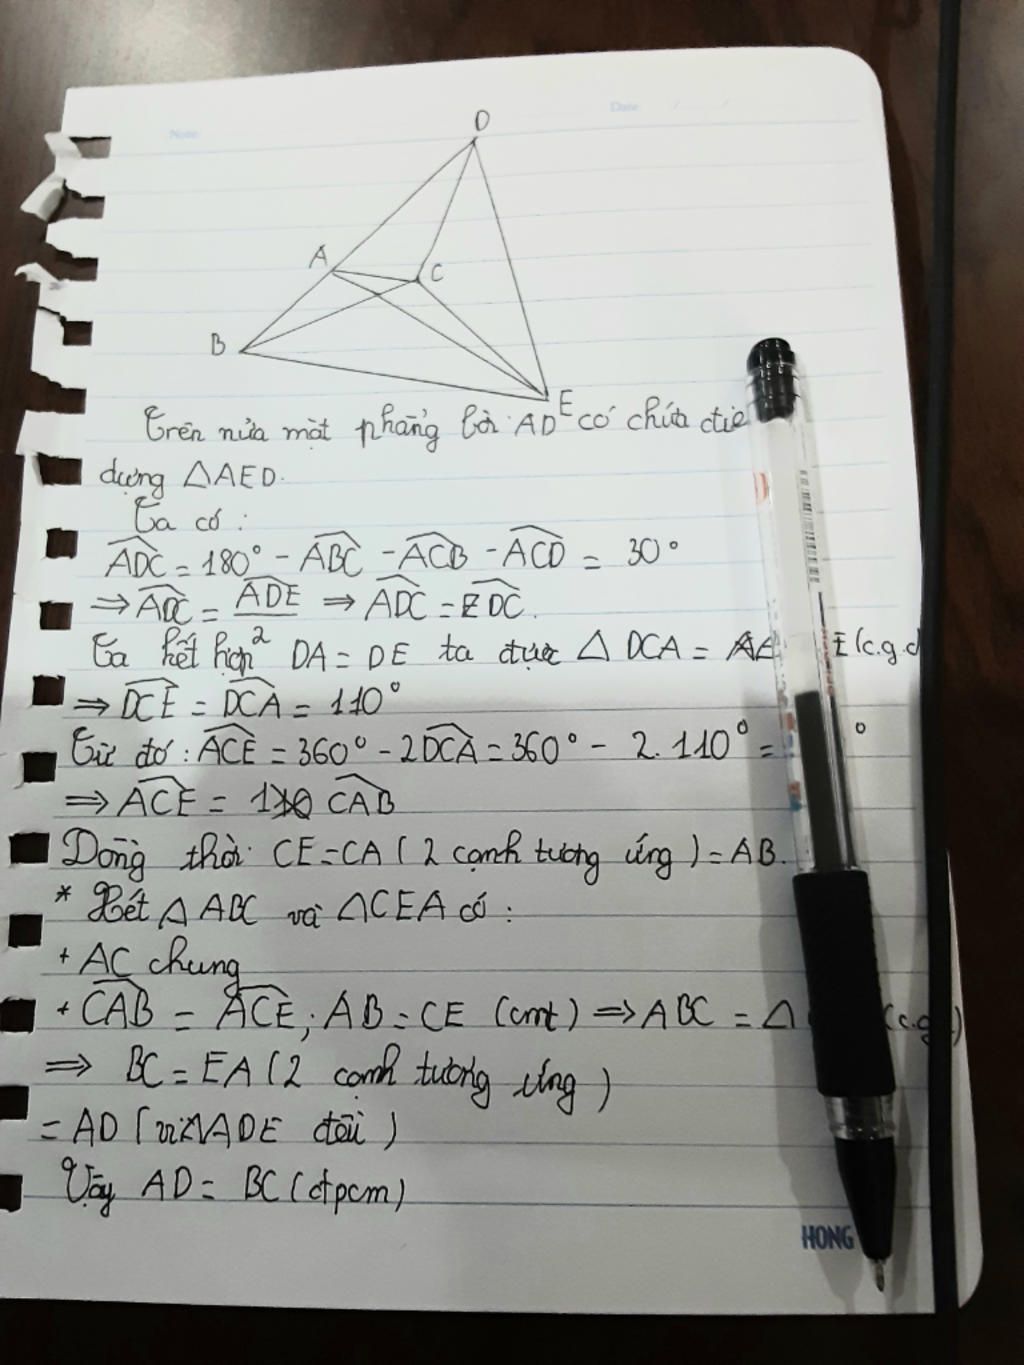 Note
Date / /
D
A
C
B
E
Trên nửa mặt phẳng bờ AD có chứa
dựng △AED.
Ta có :
ADC = 180° - ABC - ACB - ACD = 30°
⇒ ADC = ADE ⇒ ADC = EDC.
Ta kết hợp² DA = DE ta được △ DCA = E (c.g.c
⇒ DCE = DCA = 110°
Từ đó : ACE = 360° - 2DCA = 360° - 2. 110° = °
⇒ ACE = CAB
Đồng thời CE = CA ( 2 cạnh tương ứng ) = AB.
* Xét △ ABC và △CEA có :
+ AC chung
+ CAB = ACE ; AB = CE (cmt) ⇒ ABC = △ (c.g.c)
⇒ BC = EA ( 2 cạnh tương ứng )
= AD ( vì △ADE đều )
Vậy AD = BC (đpcm)
HONG